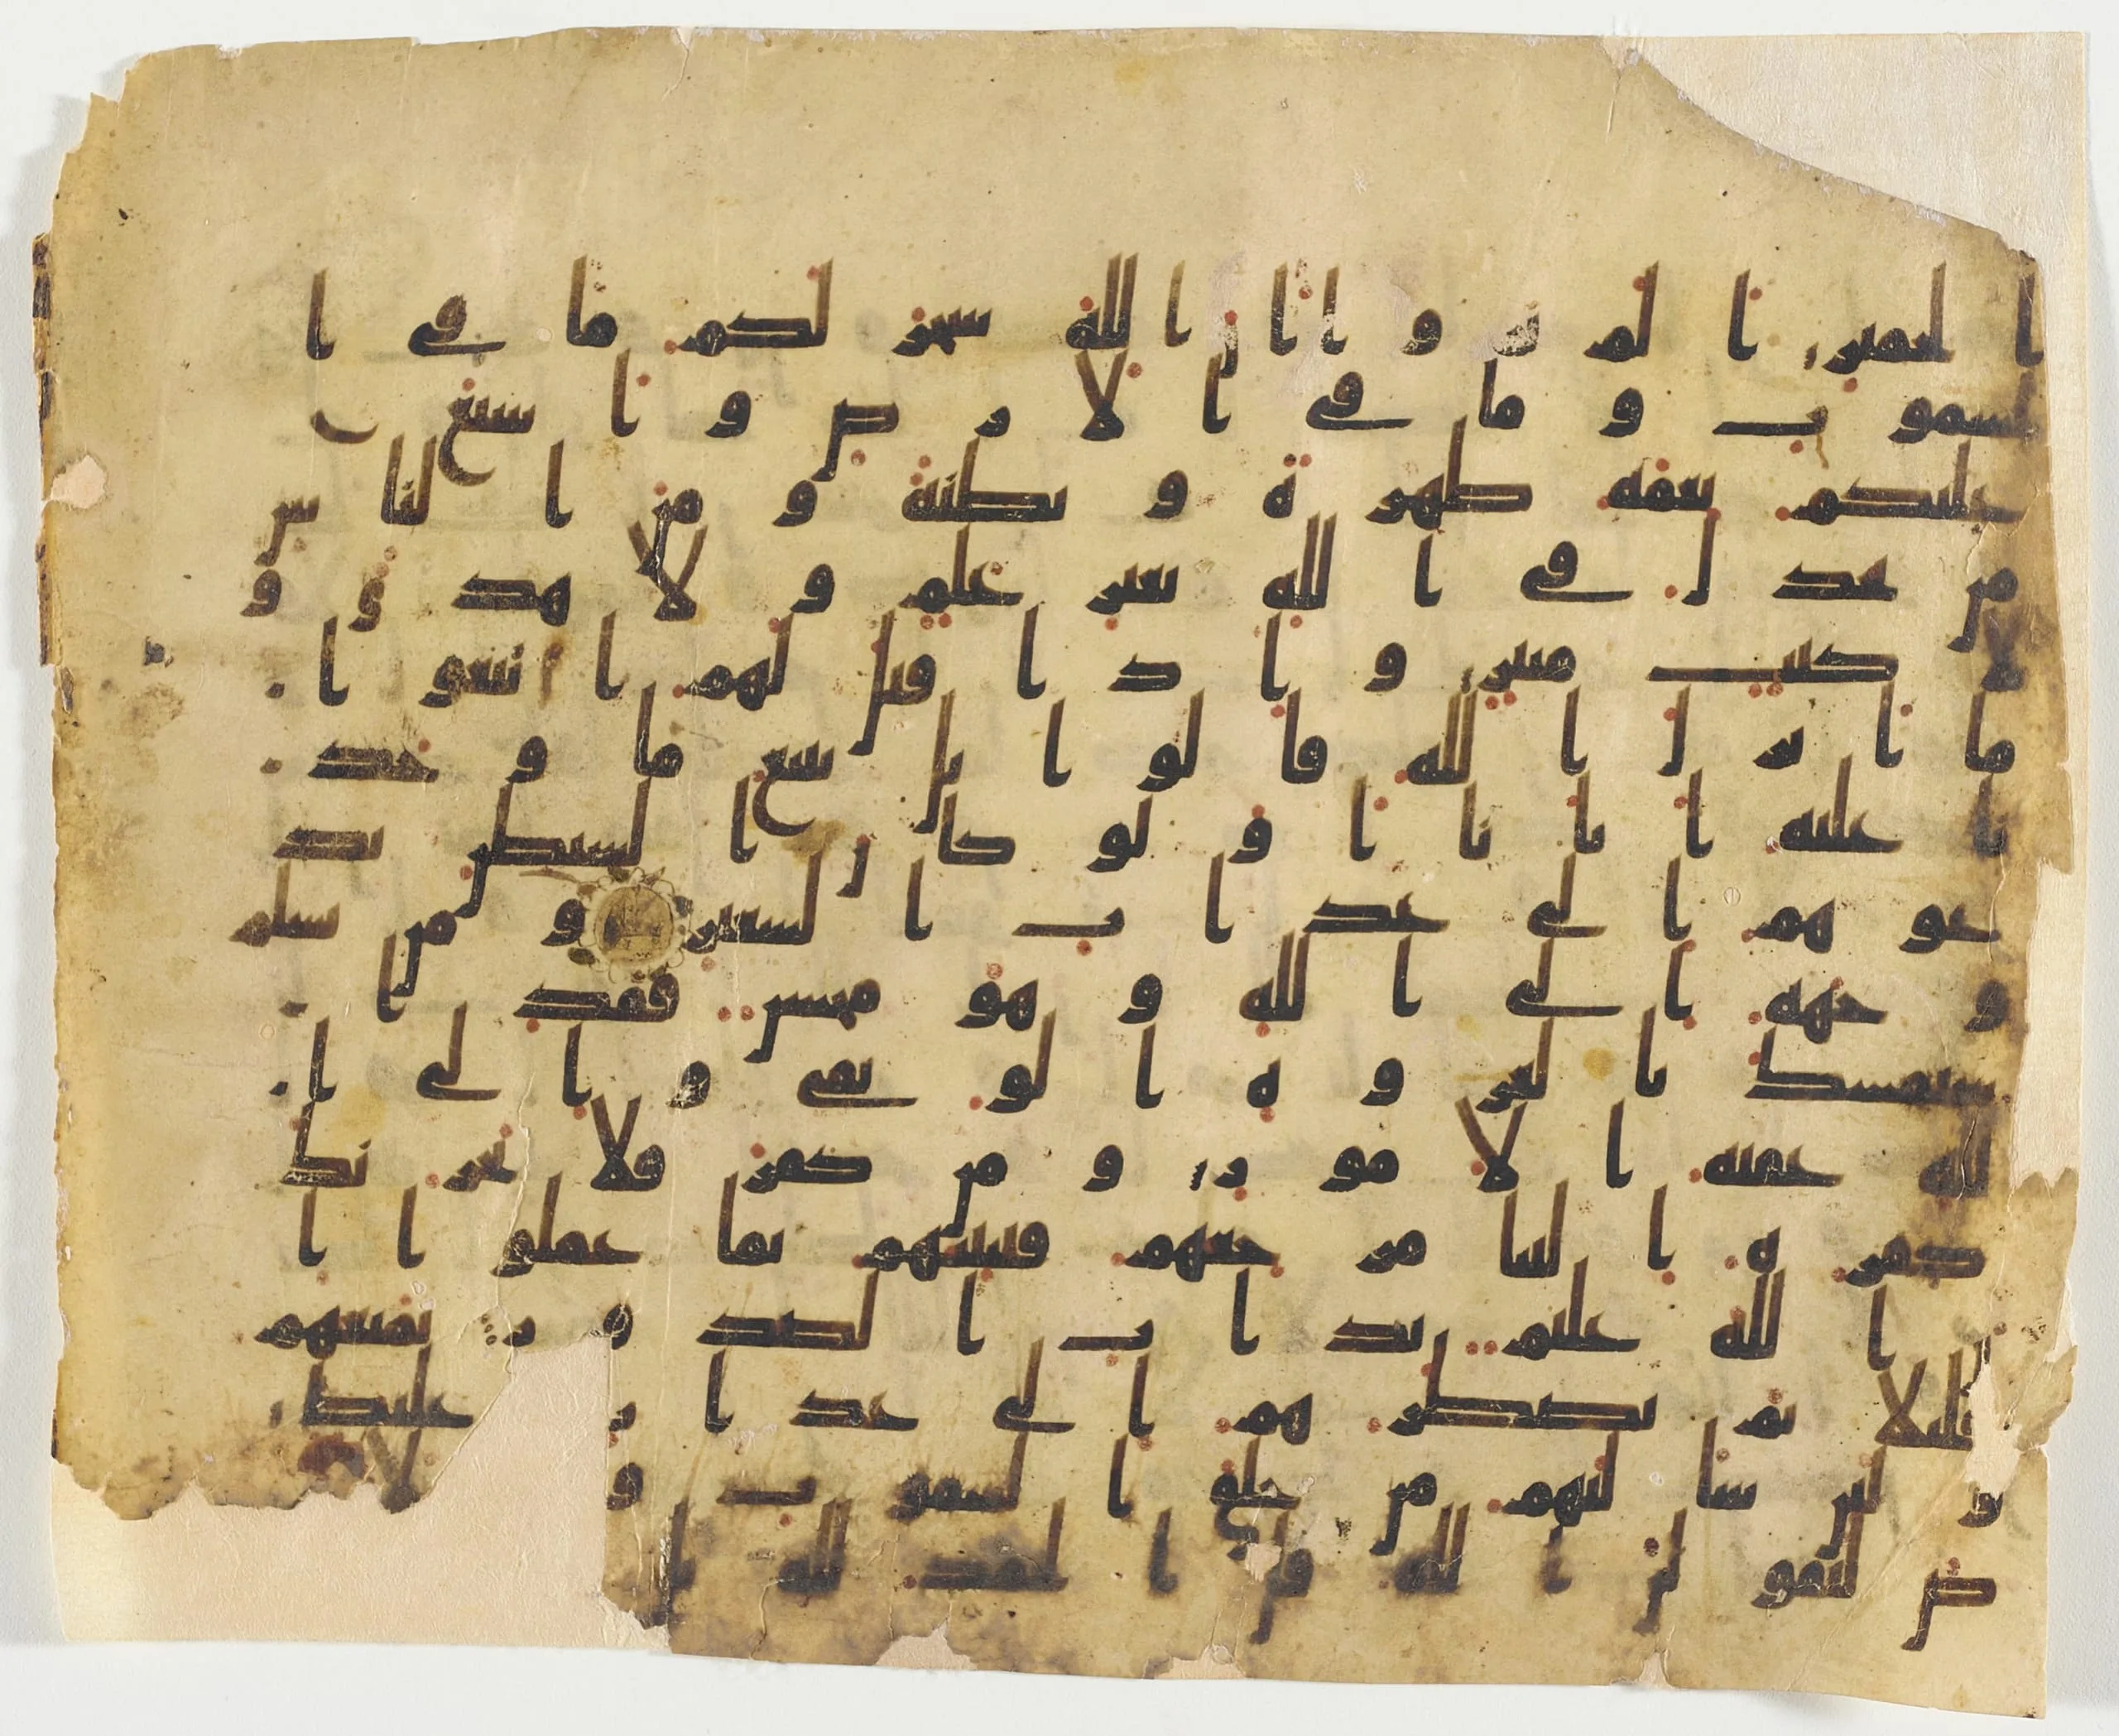 ا لحمير ا لم تر و ا ا ن ا لله سخر لكم ما في ا
لسمو ت و ما في ا لا ر ض و ا سبغ
عليكم نعمه ظهر ة و بطنة و من ا لنا س
من يجد ل في ا لله بغير علم و لا هد ى و
لا كتب منير و ا ذ ا قيل لهم ا تبعو ا
ما ا نز ل ا لله قا لو ا بل نتبع ما و جد
نا عليه ا با نا ا و لو كا ن ا لشيطن يد
عو هم ا لى عذ ا ب ا لسعير و من يسلم
و جهه ا لى ا لله و هو محسن فقد ا
ستمسك با لعر و ة ا لو ثقى و ا لى ا
لله عقبة ا لا مو ر و من كفر فلا يحز نك
كفر ه ا لينا مر جعهم فننبئهم بما عملو ا ا
ن ا لله عليم بذ ا ت ا لصد و ر نمتعهم
قليلا ثم نضطر هم ا لى عذ ا ب غليظ
و لئن سا لتهم من خلق ا لسمو ت و ا لا ر
ض ليقو لن ا لله قل ا لحمد لله بل